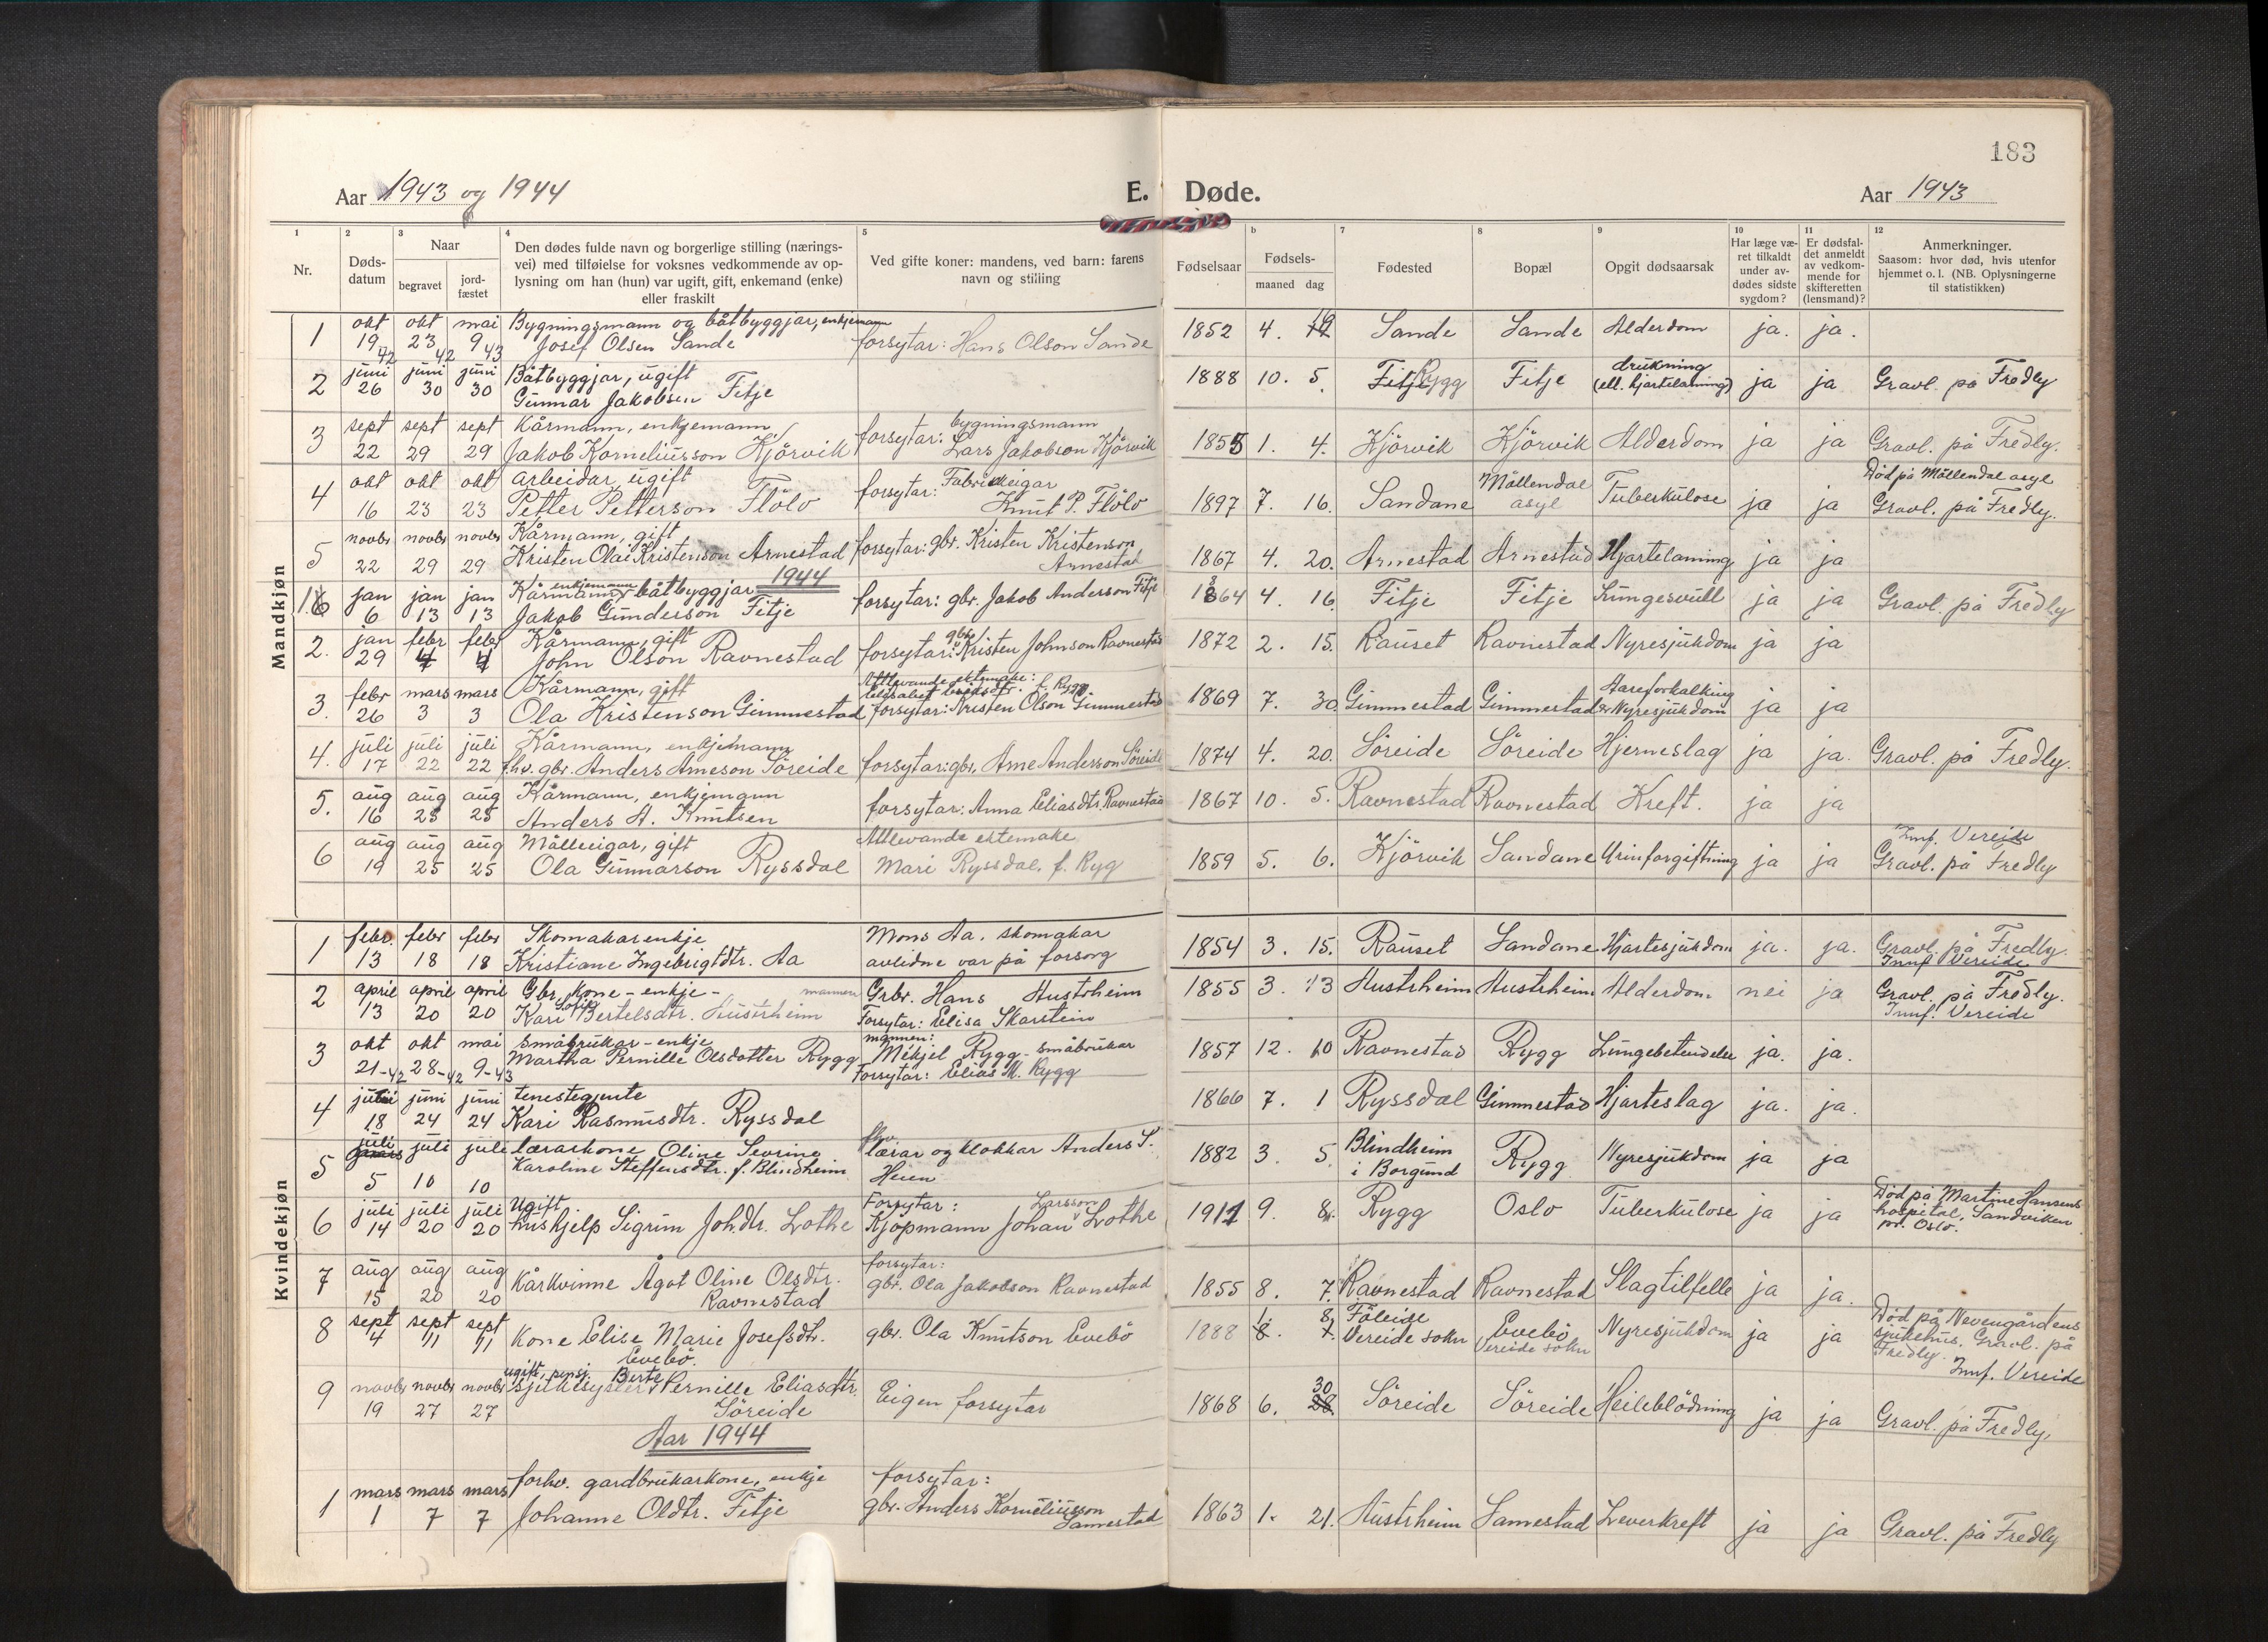 183
Aar 1943 og 1944
E. Døde.
Aar 1943
1 2 3 4 5 b 7 8 9 10 11 12
Nr.
Døds-
datum
Naar
begravet
jord-
fæstet
Den dødes fulde navn og borgerlige stilling (nærings-
vei) med tilføielse for voksnes vedkommende av op-
lysning om han (hun) var ugift, gift, enkemand (enke)
eller fraskilt
Ved gifte koner: mandens, ved barn: farens
navn og stilling
Fødselsaar
Fødsels-
maaned dag
Fødested
Bopæl
Opgit dødsaarsak
Har læge væ-
ret tilkaldt
under av-
dødes sidste
sygdom?
Er dødsfal-
det anmeldt
av vedkom-
mende for
skifteretten
(lensmand)?
Anmerkninger.
Saasom: hvor død, hvis utenfor
hjemmet o. l. (NB. Oplysningerne
til statistikken)
Mandkjøn
1 okt okt mai Bygningsmann og båtbyggjar, enkjemann
19 42 23 42 9 43 Josef Olsen Sande forsytar: Hans Olson Sande 1852 4. 19 Sande Sande Alderdom ja. ja.
2 juni juni juni Båtbyggjar, ugift
26 30 30 Gunnar Jakobsen Fitje 1888 10. 5. Fitje Rygg Fitje drukning (ell. hjartelaming) ja ja Gravl. på Fredly
3 sept sept sept Kårmann, enkjemann forsytar: bygningsmann
22 29 29 Jakob Korneliusson Kjörvik Lars Jakobson Kjörvik 1855 1. 4. Kjörvik Kjörvik Alderdom ja ja Gravl. på Fredly.
4 okt okt okt arbeidar, ugift forsytar: Fabrikkeigar Död på Möllendal asyl
16 23 23 Petter Petterson Flölo Knut P. Flölo 1897 7. 16. Sandane Möllendal asyl Tuberkulose ja ja Gravl. på Fredly.
5 novbr novbr novbr Kårmann, gift
22 29 29 Kristen Olai Kristenson Arnestad forsytar: gbr. Kristen Kristenson Arnestad 1867 4. 20. Arnestad Arnestad Hjartelaming ja ja
1944
1 jan jan jan Kårmann enkjemann båtbyggjar
6 13 13 Jakob Gunderson Fitje forsytar: gbr. Jakob Anderson Fitje 1864 4. 16. Fitje Fitje Lungesvull ja ja Gravl. på Fredly
2. jan febr febr Kårmann, gift
29 4 4 John Olson Ravnestad forsytar: gbr. Kristen Johnson Ravnestad 1872 2. 15. Rauset Ravnestad Nyresjukdom ja ja
3. febr mars mars Kårmann, gift Attlevande ektemake: f. Rygg
26 3 3 Ola Kristenson Gimmestad forsytar: Kristen Olson Gimmestad 1869 7. 30. Gimmestad Gimmestad Aareforkalking & Nyresjukdom ja ja
4. juli juli juli Kårmann, enkjemann
17 22 22 fhv. gbr. Anders Arneson Söreide forsytar: gbr. Arne Anderson Söreide 1874 4. 20. Söreide Söreide Hjerneslag ja ja. Gravl. på Fredly.
5. aug aug aug Kårmann, enkjemann
16 25 25 Anders A. Knutsen forsytar: Anna Eliasdtr. Ravnestad 1867 10. 5. Ravnestad Ravnestad Kreft. ja ja
6 aug aug aug Målleeigar, gift Attlevande ektemake Innf. Vereide
19 25 25 Ola Gunnarson Ryssdal Mari Ryssdal, f. Ryg 1859 5. 6. Kjörvik Sandane Urinforgiftning ja ja Gravl. på Fredly
Kvindekjøn
1 febr. febr febr Skomakarenkje Mons Aa. skomakar
13 18 18 Kristiane Ingebrigtdtr. Aa avlidne var på forsorg 1854 3. 15. Rauset Sandane Hjartesjukdom ja. ja. Gravl. på Fredly. Innf. Vereide
2 april april april Gbr. kone - enkje - mannen Grbr. Hans Austrheim
13 20 20 Kari Sofie Bertelsdtr. Austrheim Forsytar: Elisa Skarstein 1855 3. 13 Austrheim Austrheim Alderdom nei ja Gravl. på Fredly. Innf. Vereide
3 okt okt mai småbrukar - enkje mannen:
21-42 28-42 9-43 Martha Pernille Olsdotter Rygg Mikjel Rygg - småbrukar Forsytar: Elias M. Rygg 1857 12. 10 Ravnestad Rygg Lungebetendelse ja. ja.
4 juni juni juni tenestegjente
18 24 24 Kari Rasmusdtr. Ryssdal 1866 7. 1 Ryssdal Gimmestad Hjarteslag ja. ja.
5 juli juli juli lærarkone Oline Severine fhv. lærar og klokkar Anders S.
5 10 10 Karoline Steffensdtr. f. Blindheim Heien 1882 3. 5. Blindheim i Borgund Rygg Nyresjukdom ja ja
6 juli juli juli Ugift Forsytar: Larsson
14 20 20 hushjelp Sigrun Joh.dtr. Lothe Kjøpmann Johan Lothe 1911 9. 8. Rygg Oslo Tuberkulose ja ja Död på Martine Hansens hospital, Sandviken pr. Oslo.
7 aug aug aug Kårkvinne Agot Oline Olsdtr. forsytar:
15 20 20 Ravnestad gbr. Ola Jakobson Ravnestad 1855 8. 7. Ravnestad Ravnestad Slagtilfelle ja ja.
8 sept sept sept
4 11 11 Kone Elise Marie Josefsdtr. Evebö. gbr. Ola Knutson Evebö 1888 8. 8. Föleide Vereide sokn Evebö Vereide sokn Nyresjukdom ja ja Död på Nevengårdens sjukehus. Gravl. på Fredly. Innf. Vereide
9 novbr novbr novbr ugift, pensj. sjukesyster Berte Pernille Eliasdtr.
19 27 27 Söreide Eigen forsytar 1868 6. 30 28. Söreide Söreide Heileblödning ja ja Gravl. på Fredly.
Aar 1944
1 mars mars mars forhv. gardbrukarkone, enkje forsytar:
1 7 7 Johanne Oldtr. Fitje gbr. Anders Korneliusson Samestad 1863 1. 21. Austrheim Samestad Leverkreft ja ja Gravl. på Fredly